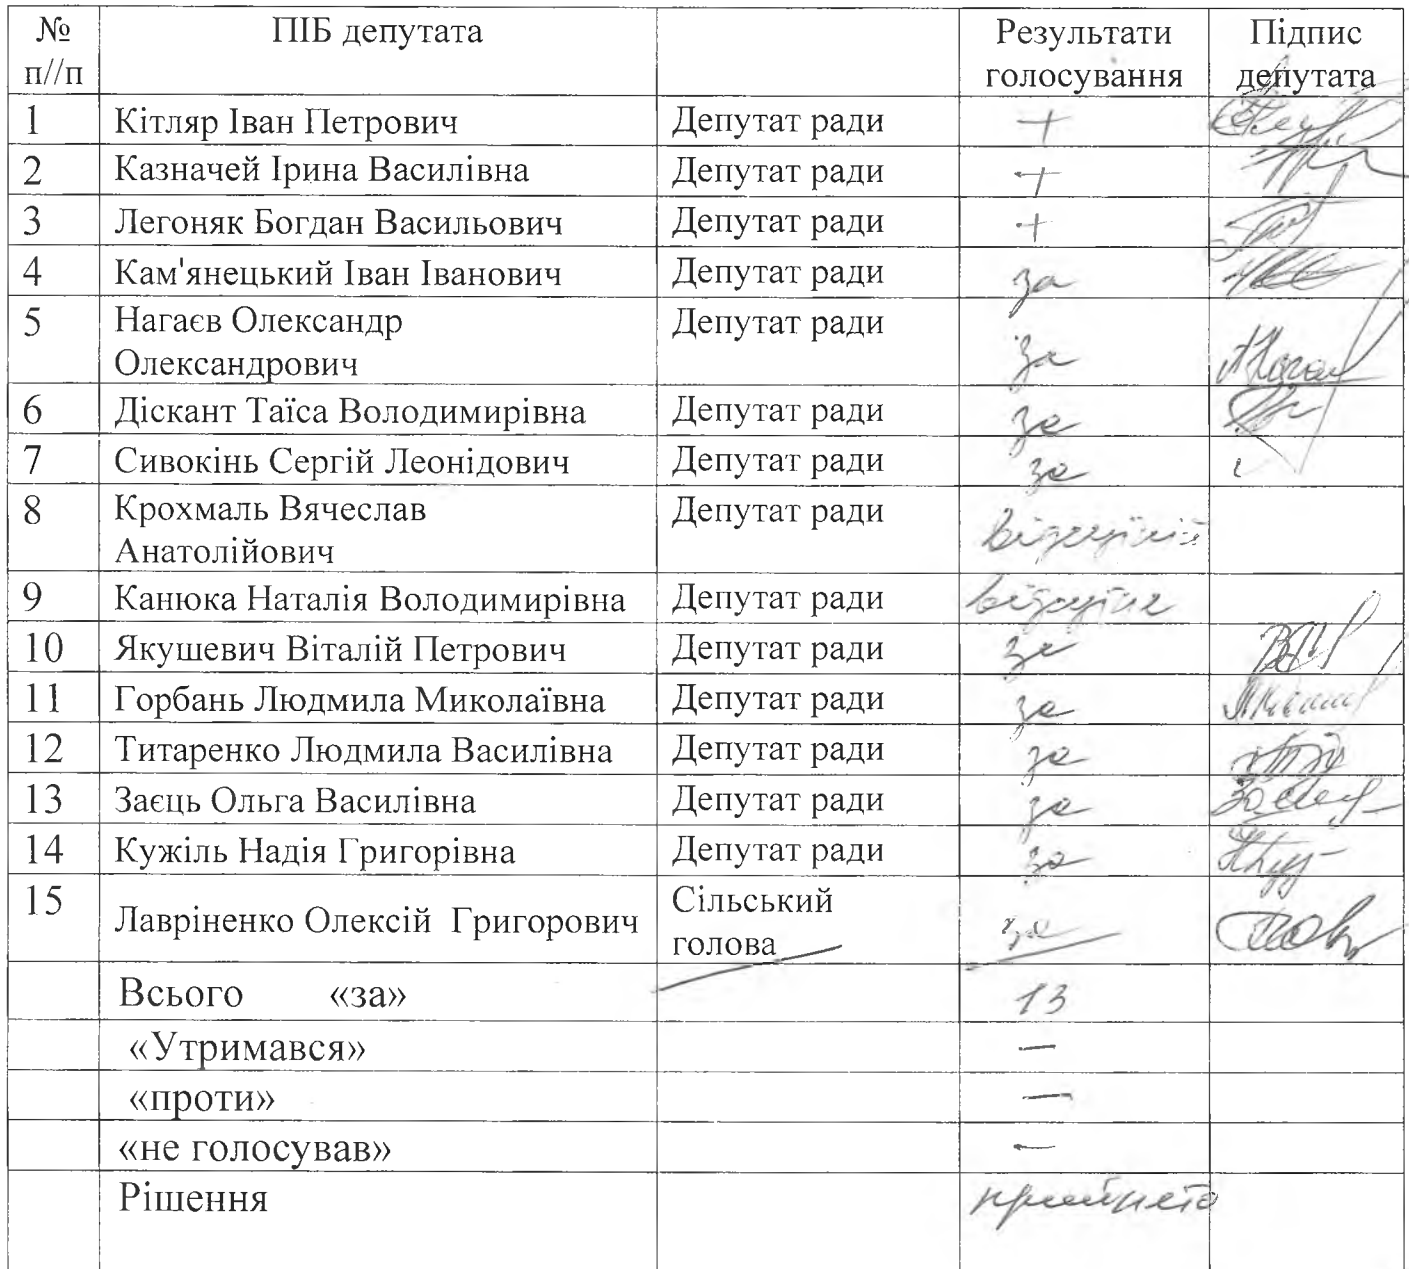 № ПІБ депутата Результати Підпис
п//п голосування депутата
1 Кітляр Іван Петрович Депутат ради +
2 Казначей Ірина Василівна Депутат ради +
3 Легоняк Богдан Васильович Депутат ради +
4 Кам'янецький Іван Іванович Депутат ради за
5 Нагаєв Олександр Депутат ради
Олександрович за
6 Діскант Таїса Володимирівна Депутат ради за
7 Сивокінь Сергій Леонідович Депутат ради за
8 Крохмаль Вячеслав Депутат ради
Анатолійович відсутній
9 Канюка Наталія Володимирівна Депутат ради відсутня
10 Якушевич Віталій Петрович Депутат ради за
11 Горбань Людмила Миколаївна Депутат ради за
12 Титаренко Людмила Василівна Депутат ради за
13 Заєць Ольга Василівна Депутат ради за
14 Кужіль Надія Григорівна Депутат ради за
15 Лавріненко Олексій Григорович Сільський
голова за
Всього «за» 13
«Утримався» —
«проти» —
«не голосував» —
Рішення прийнято